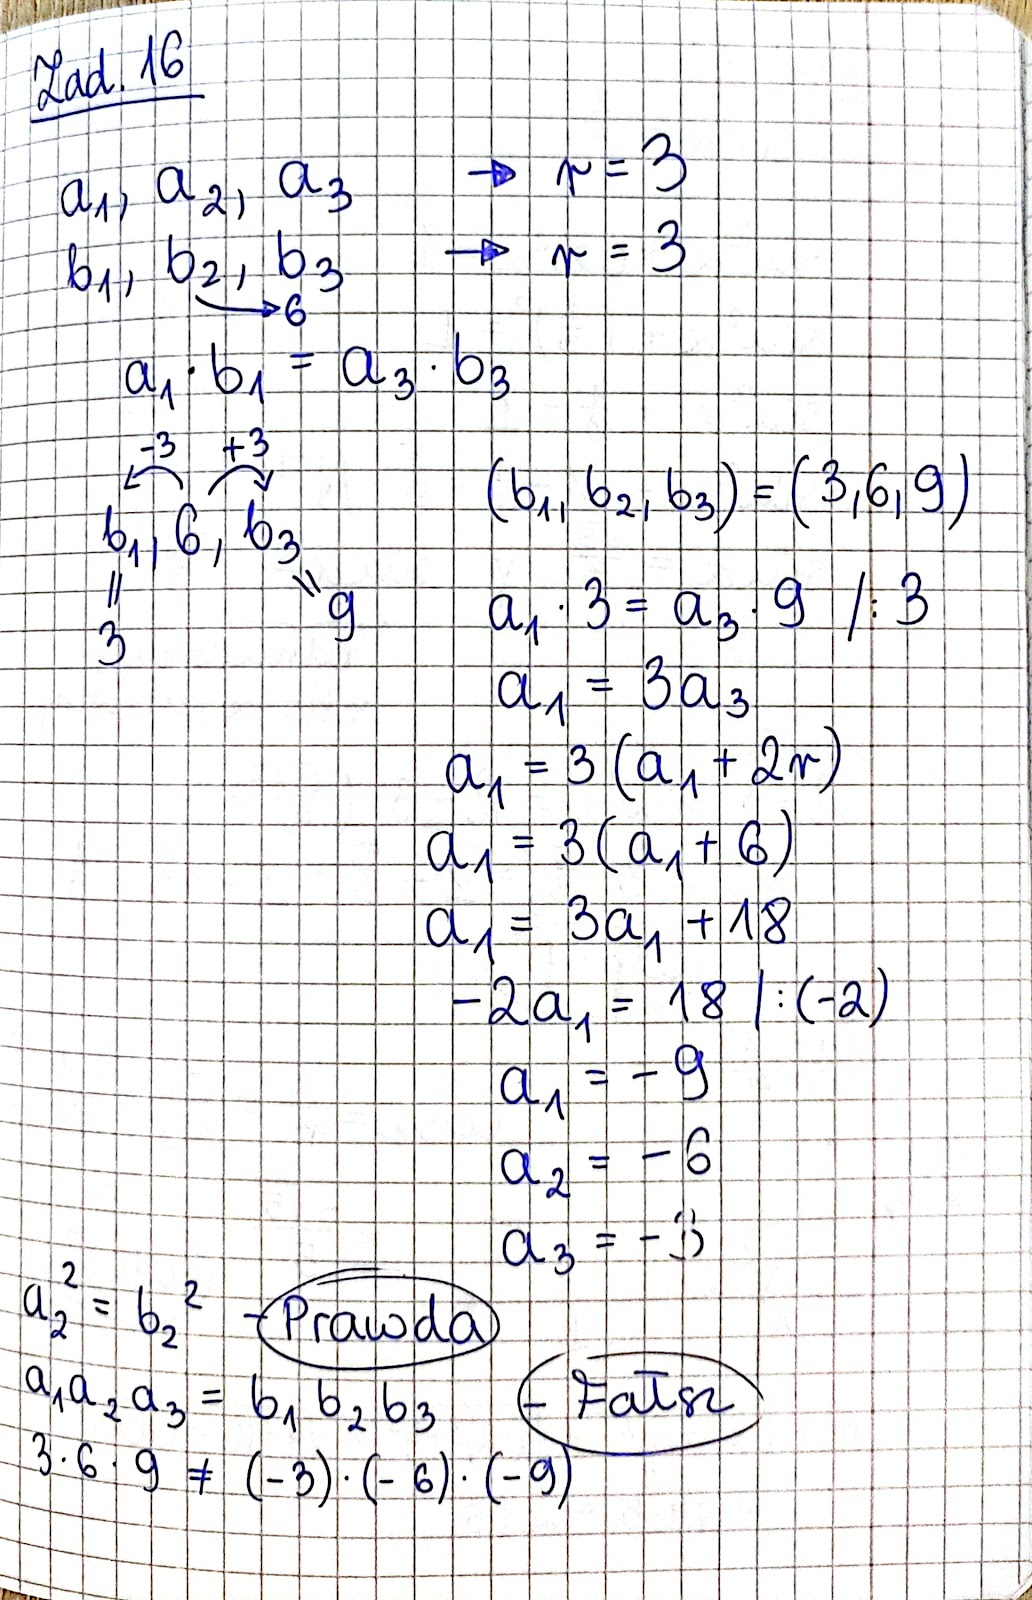 Zad. 16
a₁, a₂, a₃ → r = 3
b₁, b₂, b₃ → r = 3
→ 6
a₁ · b₁ = a₃ · b₃
-3 +3
b₁, 6, b₃
=
3
= 9
(b₁, b₂, b₃) = (3, 6, 9)
a₁ · 3 = a₃ · 9 /: 3
a₁ = 3a₃
a₁ = 3(a₁ + 2r)
a₁ = 3(a₁ + 6)
a₁ = 3a₁ + 18
-2a₁ = 18 |:(-2)
a₁ = -9
a₂ = -6
a₃ = -3
a₂² = b₂² - Prawda
a₁a₂a₃ = b₁b₂b₃ - Fałsz
3·6·9 ≠ (-3)·(-6)·(-9)